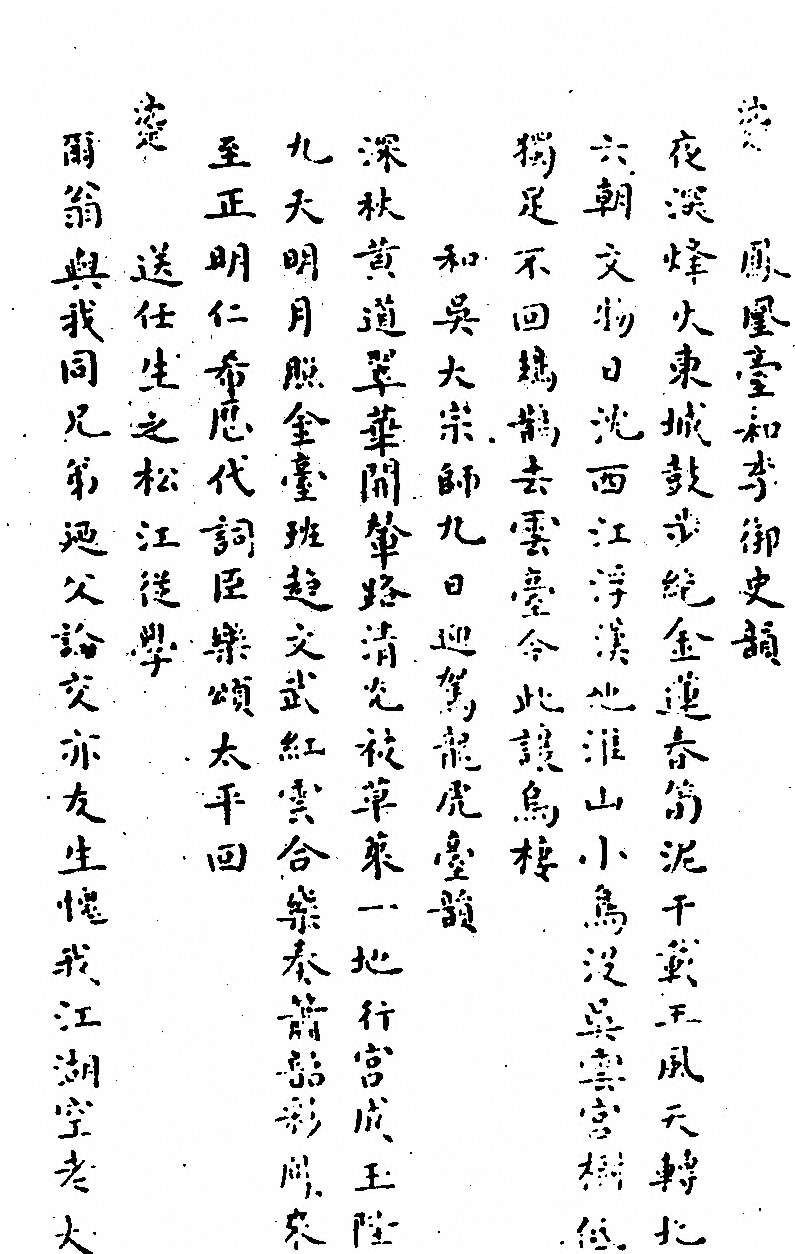 鳳凰臺和李御史韻
夜深烽火東城鼓步絶金蓮春泥千載王風天轉北
六朝文物日沈西江浮漢地淮山小鳥没吳雲宮樹低
獨足不回鵲去雲臺今此讓烏棲
和吳大宗師九日迎駕龍虎臺韻
深秋黃道翠華開輦路清光被草萊一地行宮成玉陛
九天明月照金臺班趨文武紅雲合樂奏簫韶彩鳳來
至正明仁希歷代詞臣樂頌太平回
送任生之松江從學
爾翁與我同兄弟廼父論交亦友生愧我江湖空老大